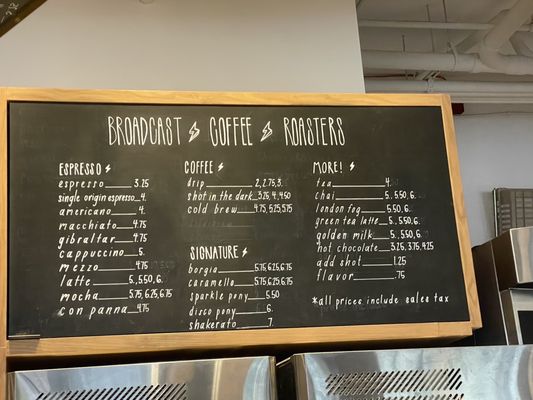 BROADCAST COFFEE ROASTERS
ESPRESSO
espresso 3.25
single origin espresso 4.
americano 4.
macchiato 4.75
gibraltar 4.75
cappuccino 5.
mezzo 4.75
latte 5., 5.50, 6.
mocha 5.75, 6.25, 6.75
con panna 4.75
COFFEE
drip 2., 2.75, 3.
shot in the dark 3.75, 4., 4.50
cold brew 4.75, 5.25, 5.75
SIGNATURE
borgia 5.75, 6.25, 6.75
caramello 5.75, 6.25, 6.75
sparkle pony 5.50
disco pony 6.
shakerato 7.
MORE!
tea 4.
chai 5., 5.50, 6.
london fog 5., 5.50, 6.
green tea latte 5., 5.50, 6.
golden milk 5., 5.50, 6.
hot chocolate 3.25, 3.75, 4.25
add shot 1.25
flavor .75
*all prices include sales tax